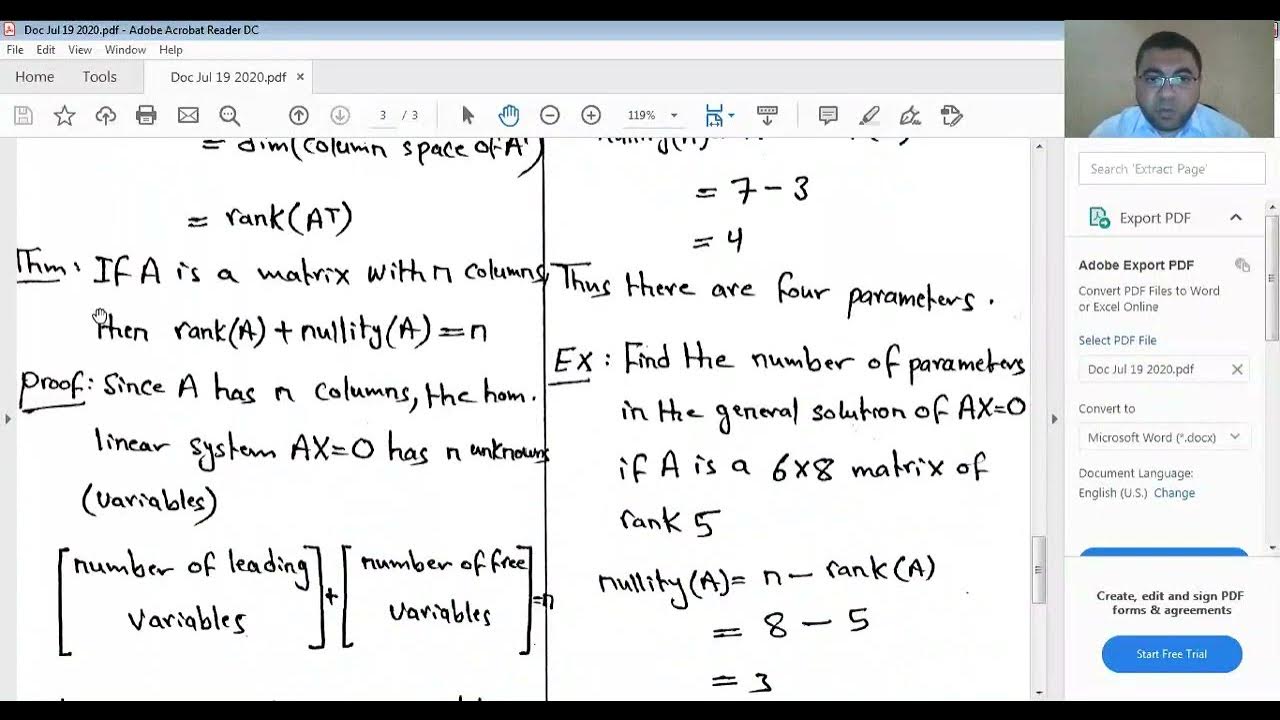 Doc Jul 19 2020.pdf - Adobe Acrobat Reader DC
File Edit View Window Help
Home Tools Doc Jul 19 2020.pdf ×
3 / 3 119%
= dim(column space of A
= rank(AT)
Thm: If A is a matrix with n columns,
then rank(A) + nullity(A) = n
Proof: Since A has n columns, the hom.
linear system AX=0 has n unknowns
(variables)
[number of leading variables] + [number of free variables] = n
= 7 - 3
= 4
Thus there are four parameters.
Ex: Find the number of parameters
in the general solution of AX=0
if A is a 6x8 matrix of
rank 5
nullity(A) = n - rank(A)
= 8 - 5
= 3
Search 'Extract Page'
Export PDF
Adobe Export PDF
Convert PDF Files to Word
or Excel Online
Select PDF File
Doc Jul 19 2020.pdf ×
Convert to
Microsoft Word (*.docx)
Document Language:
English (U.S.) Change
Create, edit and sign PDF
forms & agreements
Start Free Trial